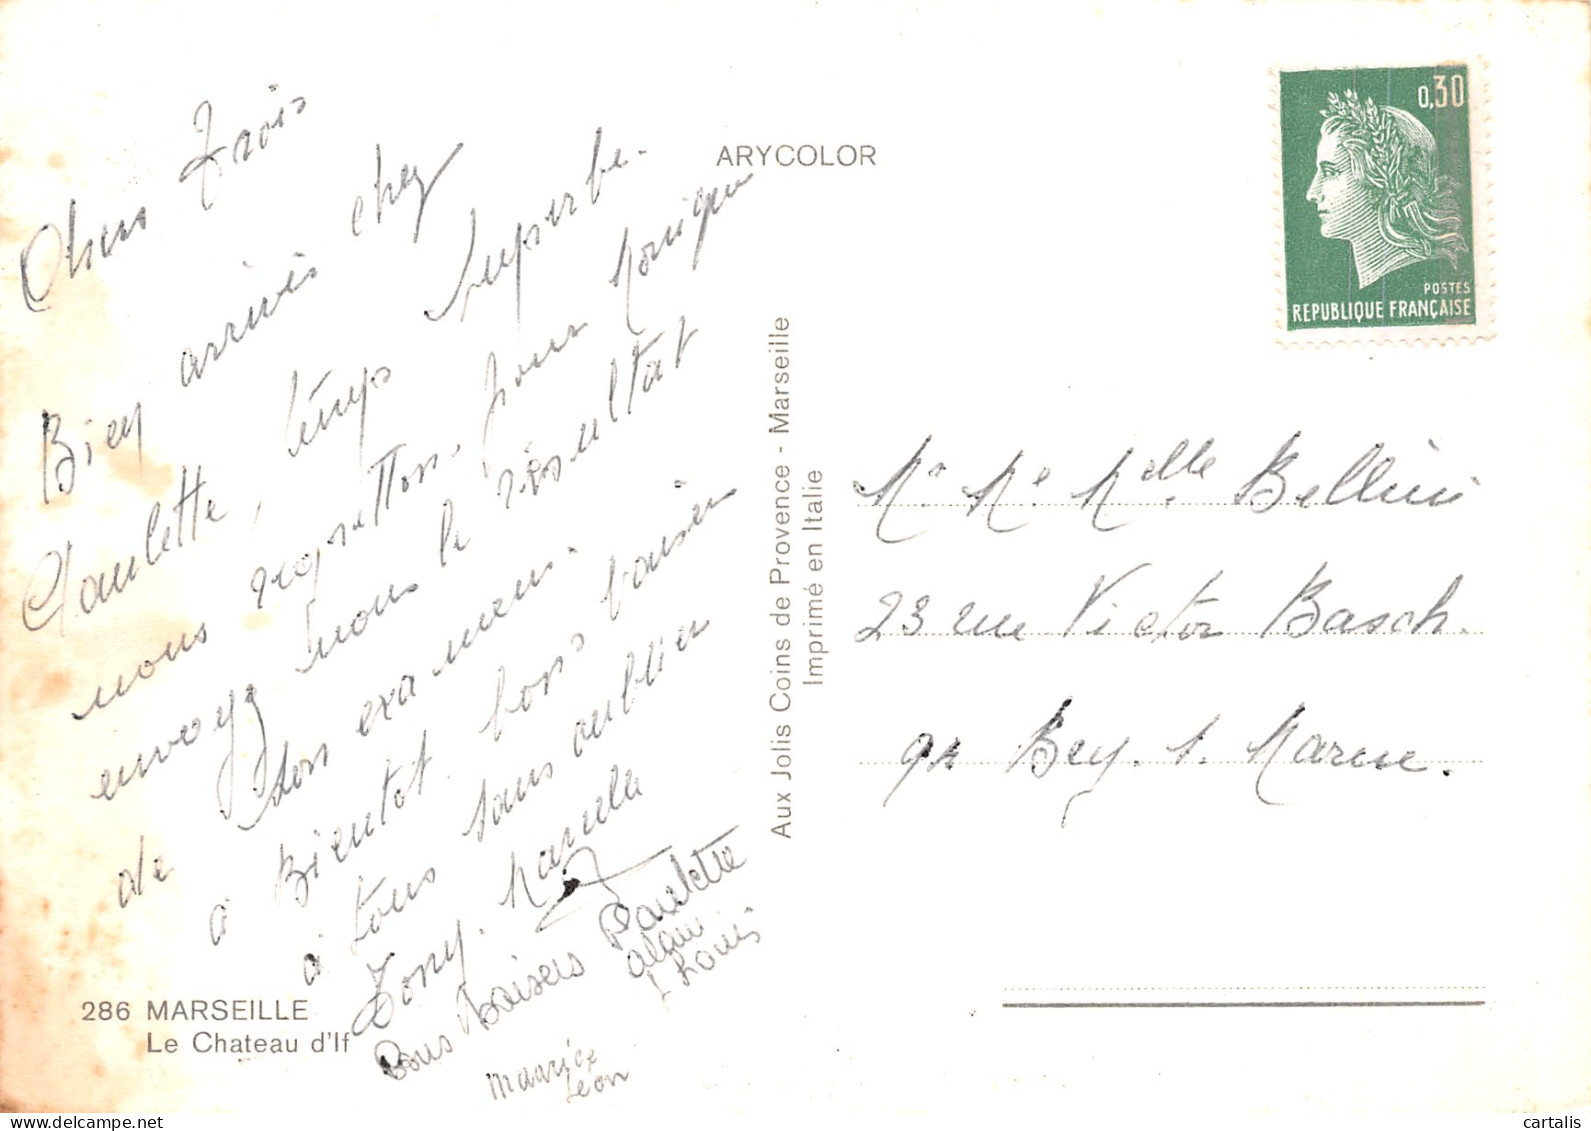 Chers Trois
Bien arrivés chez
Paulette, temps superbe.
nous regrettons. pour Monique
envoyez nous le résultat
de son examens.
a Bientot bons baiser
a tous sans oublier
Tony. Marcelle
Bons Baisers Paulette
alain
J Louis
Maurice
Leon
286 MARSEILLE
Le Chateau d'If
ARYCOLOR
Aux Jolis Coins de Provence - Marseille
Imprimé en Italie
0,30
POSTES
REPUBLIQUE FRANÇAISE
Mr Me Melle Bellini
23 rue Victor Basch.
94 Bry. s. Marne.
cartalis